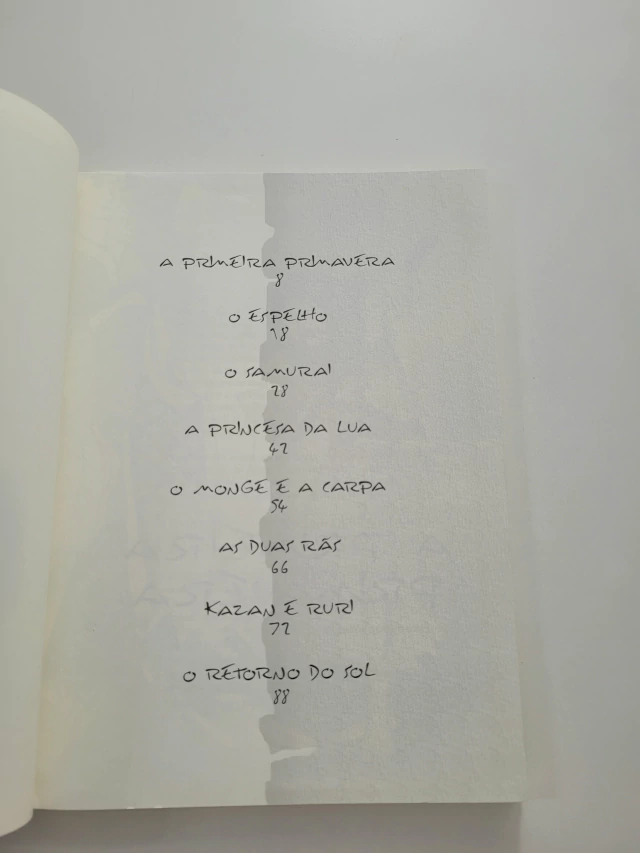 A PRIMEIRA PRIMAVERA
8
O ESPELHO
18
O SAMURAI
28
A PRINCESA DA LUA
42
O MONGE E A CARPA
54
AS DUAS RÃS
66
KAZAN E RURI
72
O RETORNO DO SOL
88